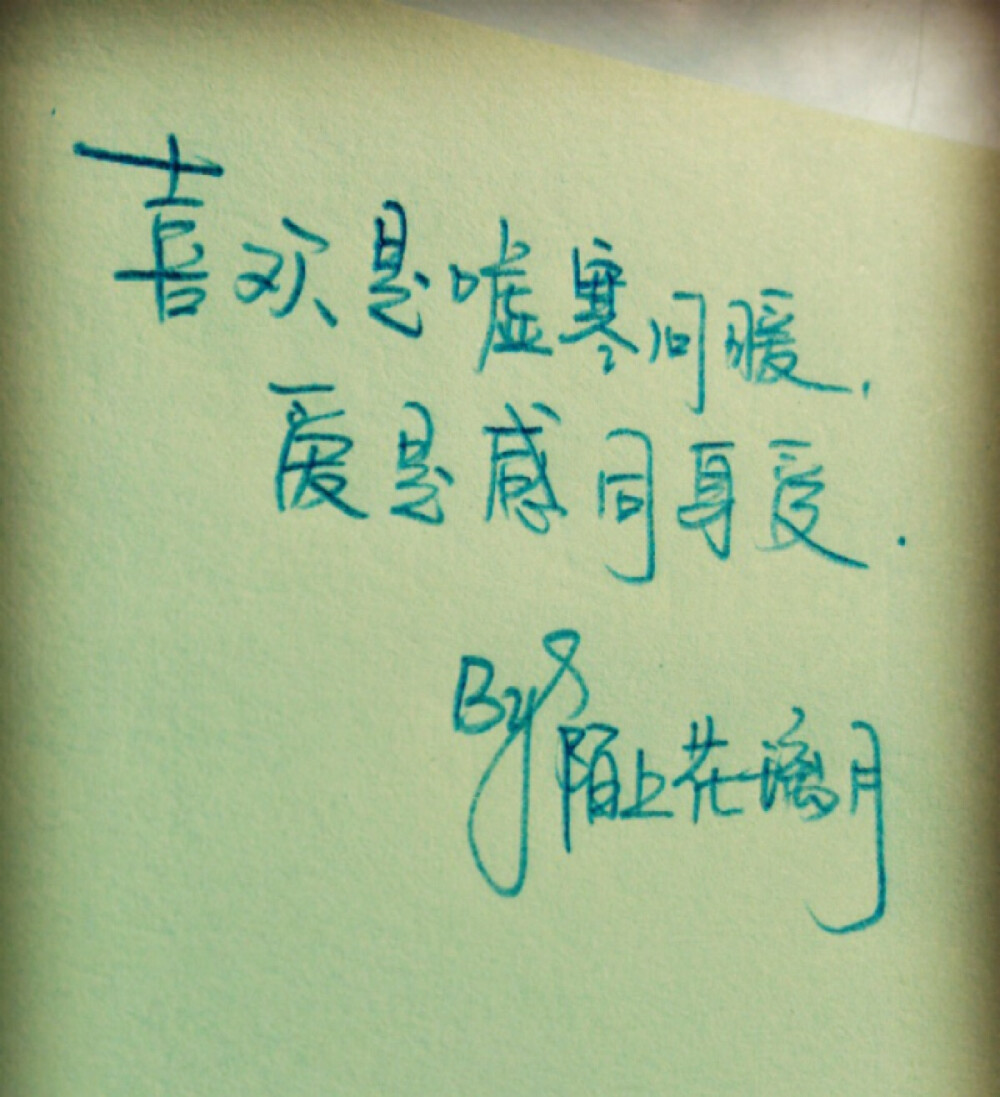 喜欢是嘘寒问暖.
爱是感同身受.
By 陌上花璃月